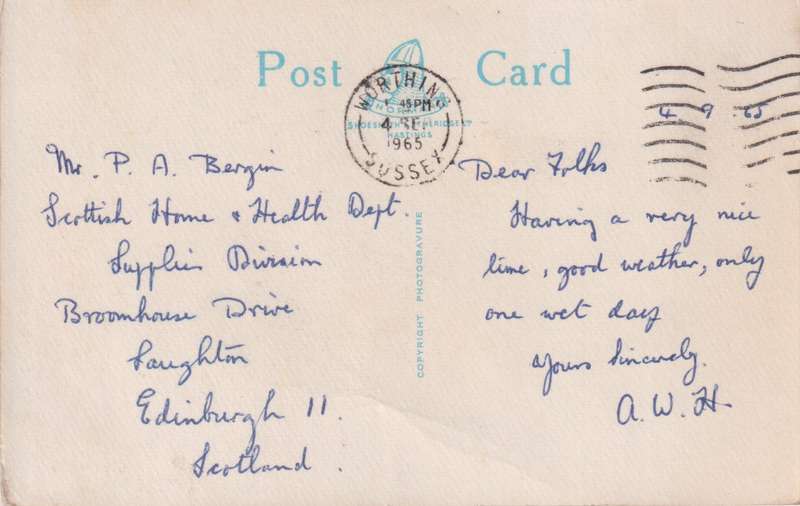 Post Card
WORTHING
45PM
4 SEP
1965
SUSSEX
NORMAN
SHOESMITH & ETHERIDGE LTD
HASTINGS
4.9.65
Mr. P. A. Bergin
Scottish Home & Health Dept.
Supplies Division
Broomhouse Drive
Saughton
Edinburgh 11.
Scotland.
COPYRIGHT PHOTOGRAVURE
Dear Folks
Having a very nice
time, good weather, only
one wet day
Yours Sincerely.
A. W. H.